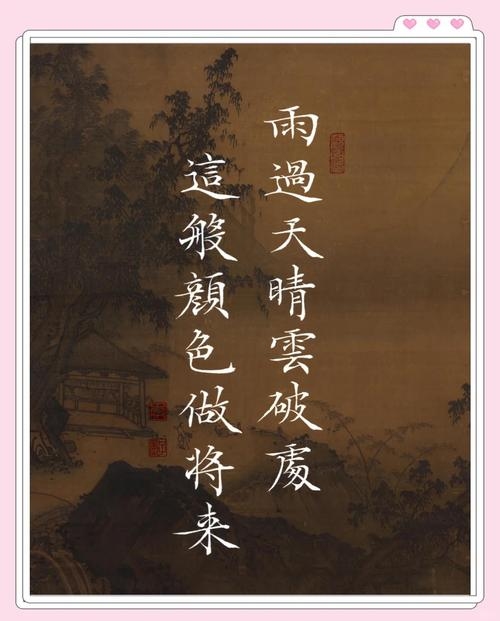 雨過天晴雲破處
這般顏色做將来